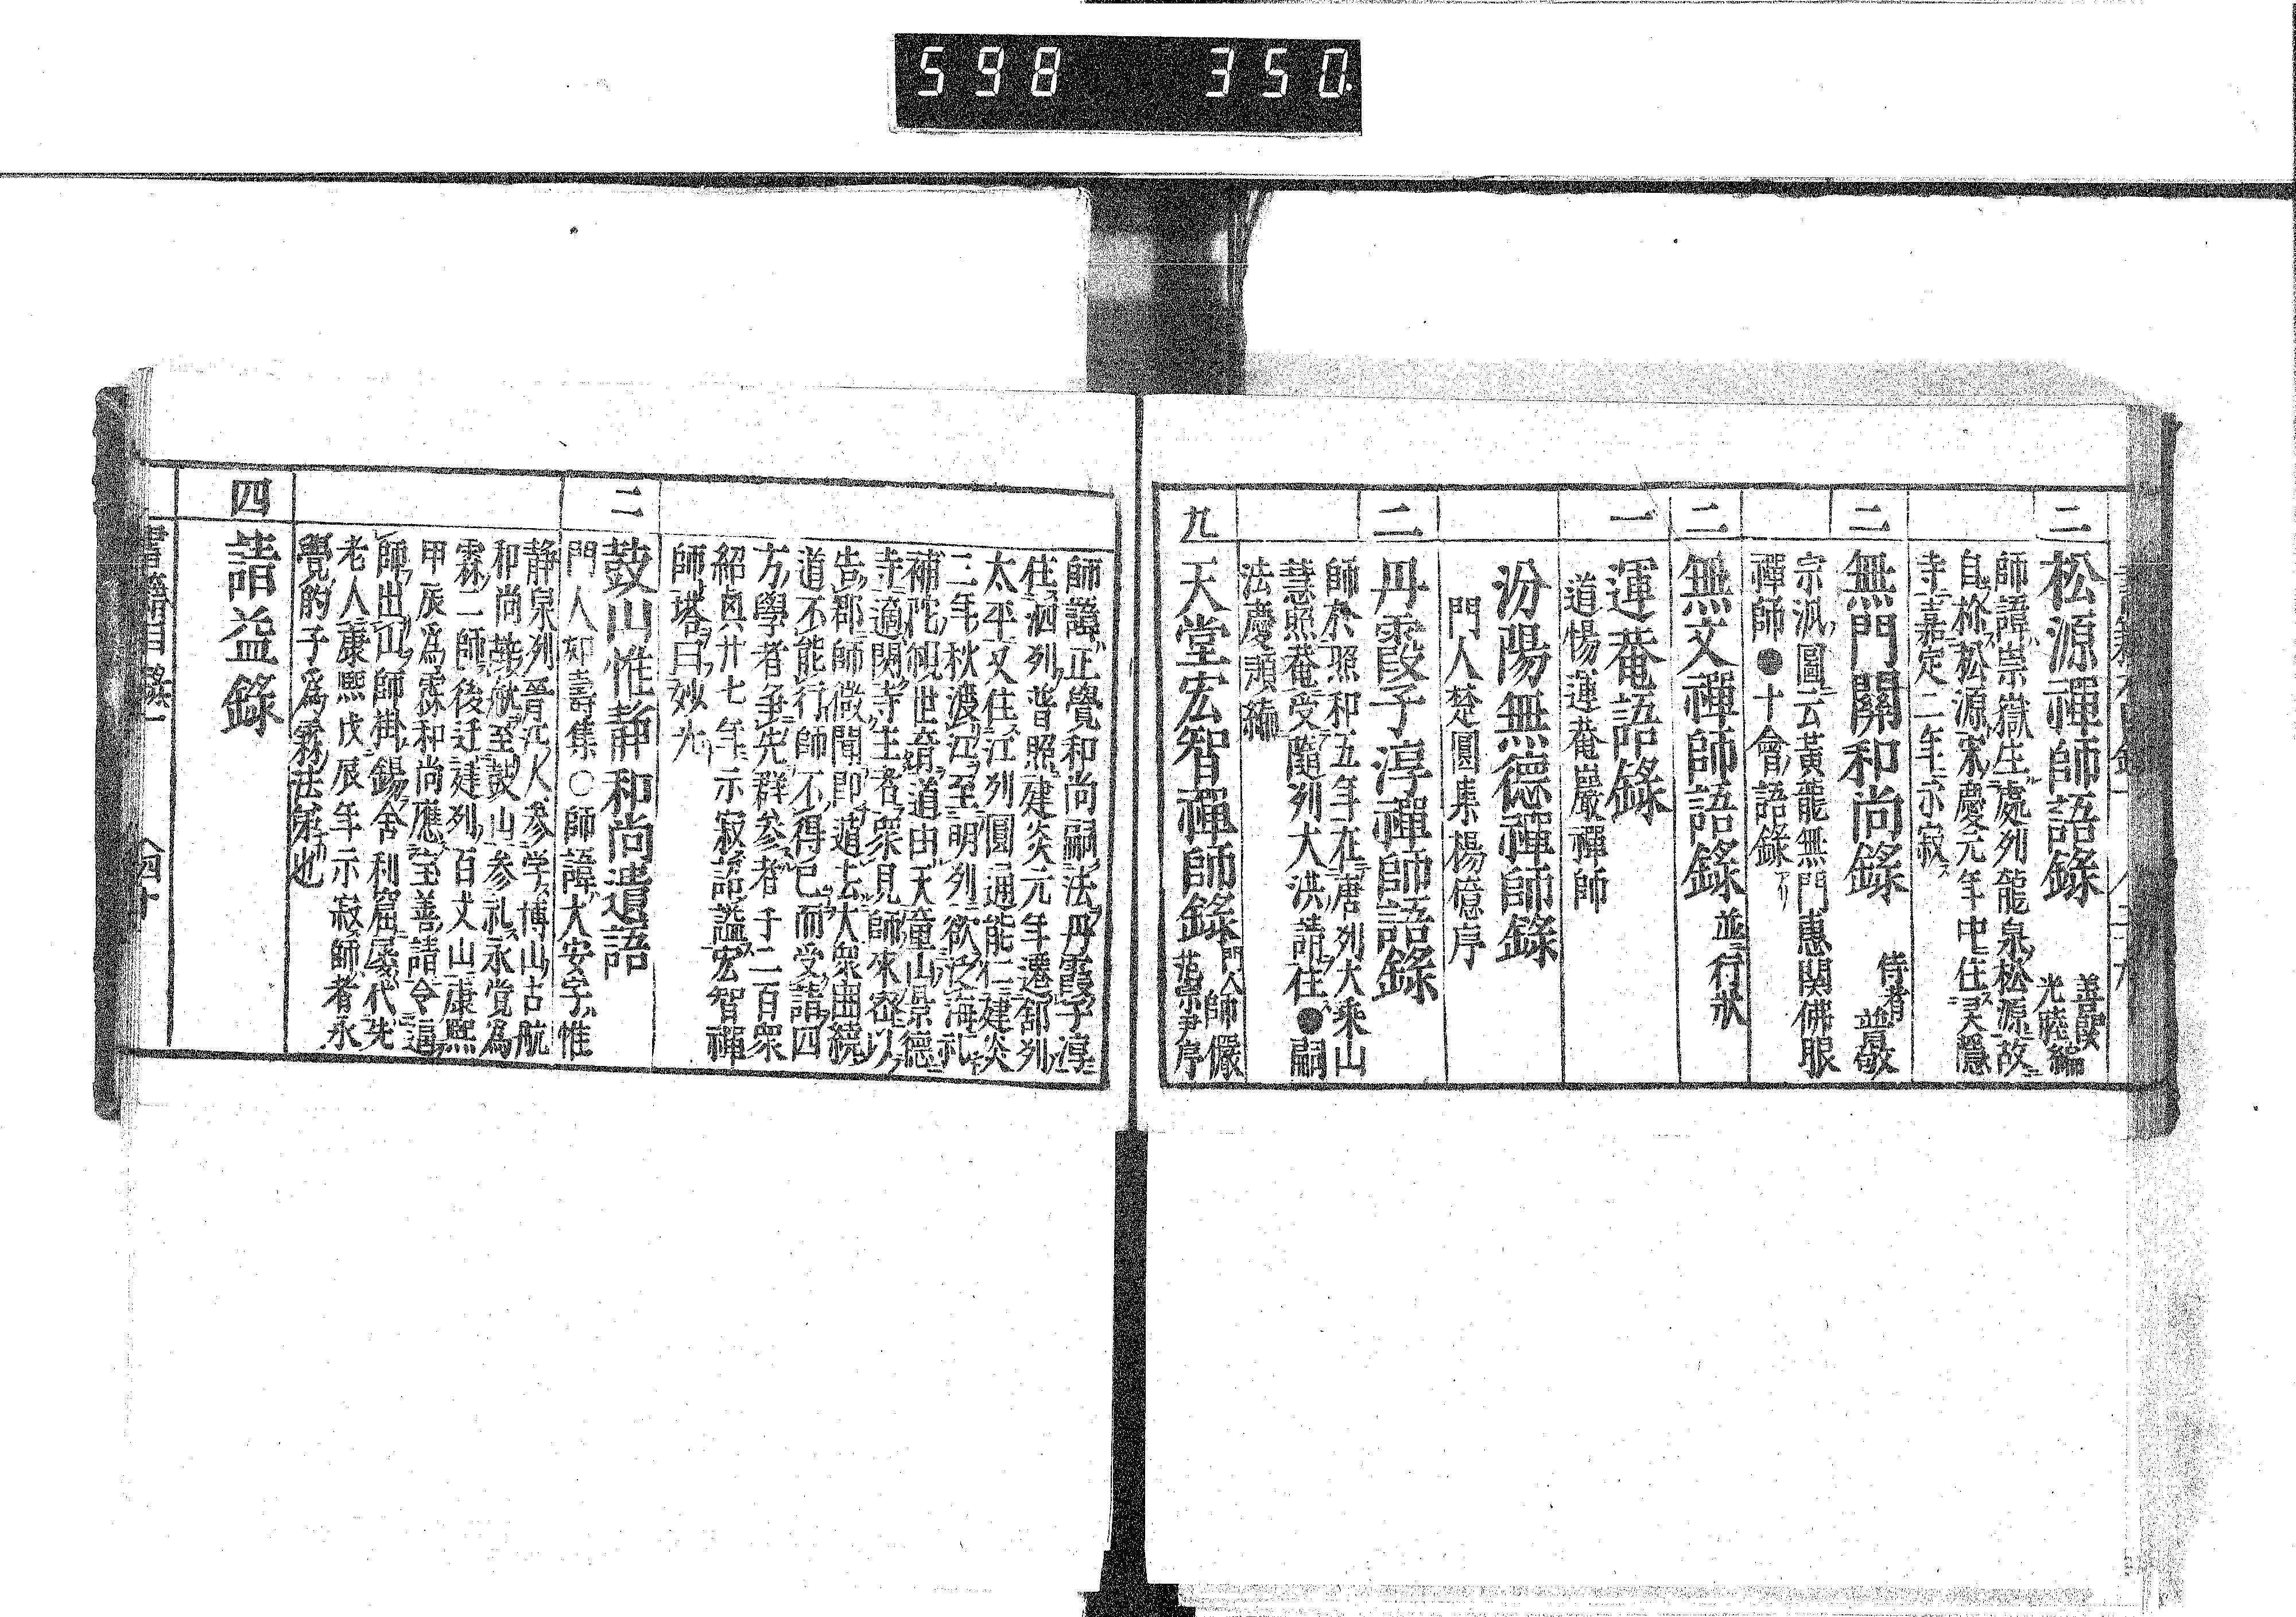 598 350
二 松源禪師語錄 善開
光睦編
師諱崇嶽生處列龍泉松源故
自称松源宋慶元年中住灵隱
寺嘉定二年示寂
二 無門關和尚錄 侍者 普敬
宗派圖云黃龍無門惠開佛眼
禪師●十會語錄アリ
二 無文禪師語錄 並行狀
一 運菴語錄
道惕運菴巖禪師
汾陽無德禪師錄
門人楚圓集楊億序
二 丹霞子淳禪師語錄
師於照和五年在唐列大乘山
慧照菴受隨列大洪請住●嗣
法慶預編
九 天堂宏智禪師錄 門人師儼
范宗尹序
師諱正覺和尚嗣法丹霞子淳
住泗列普照建炎元年遷舒列
太平又住江列圓通能仁建炎
三年秋渡江至明列欲泛海礼
補陀觀世音道由天童山景德
寺適闕寺主者衆見師來密以
告郡師微聞即遁去大衆囲繞
道不能行師不得已而受請四
方學者爭先群參者于二百衆
紹興廿七年示寂詔謚宏智禪
師塔曰妙光
二 鼓山惟静和尚遺語
門人如壽集○師諱大安字惟
静泉列晉江人参学博山古航
和尚
霖二師後迁建列百丈山康熙
甲辰為霖和尚應宝善請令逼
師出山師掛錫舍利窟屡代先
老人康熙戊辰年示寂師者永
覺的子為霖法弟也
四 請益錄
書籍目錄一
四十